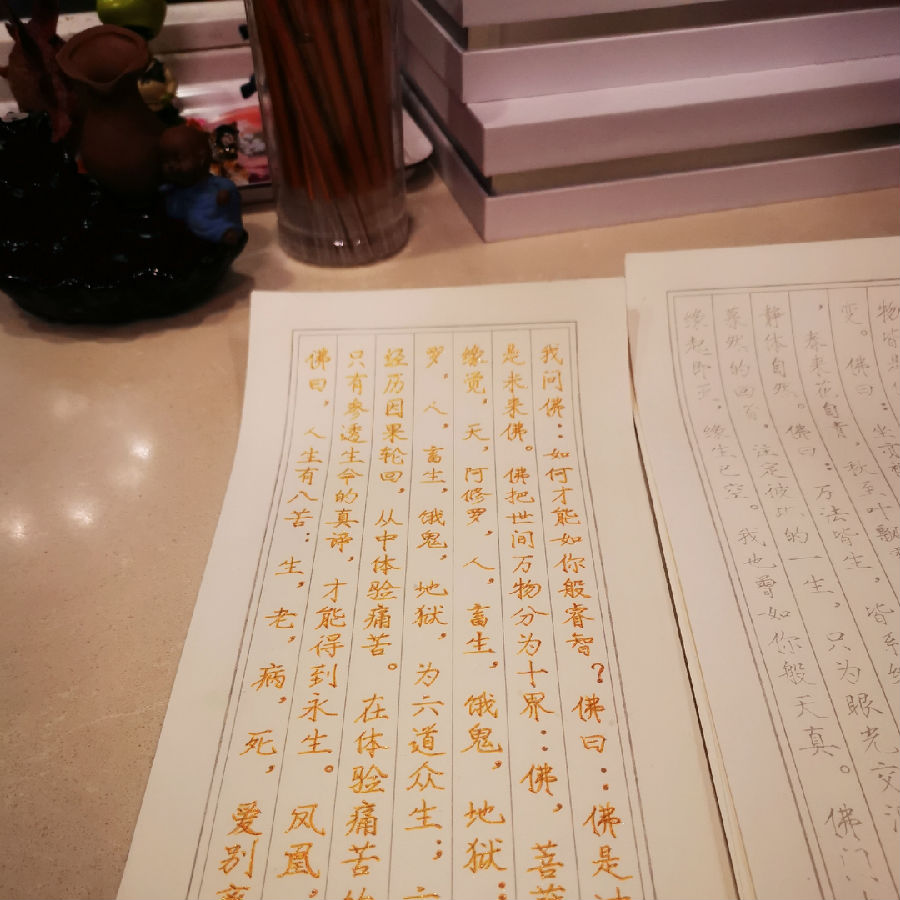 我问佛：如何才能如你般睿智？佛曰：佛是过
是来来佛。佛把世间万物分为十界：佛，菩萨
缘觉，天，阿修罗，人，畜生，饿鬼，地狱：
罗，人，畜生，饿鬼，地狱，为六道众生；六
经历因果轮回，从中体验痛苦。在体验痛苦的
只有参透生命的真谛，才能得到永生。凤凰，
佛曰，人生有八苦：生，老，病，死，爱别离
物皆是化：坐
变。佛曰：万法皆生，皆系缘
，春来花自青，秋至叶飘
静体自然。佛曰
蓦然的回首，注定彼此的一生，只为眼光交
缘起即灭，缘生已空。我也曾如你般天真。佛门